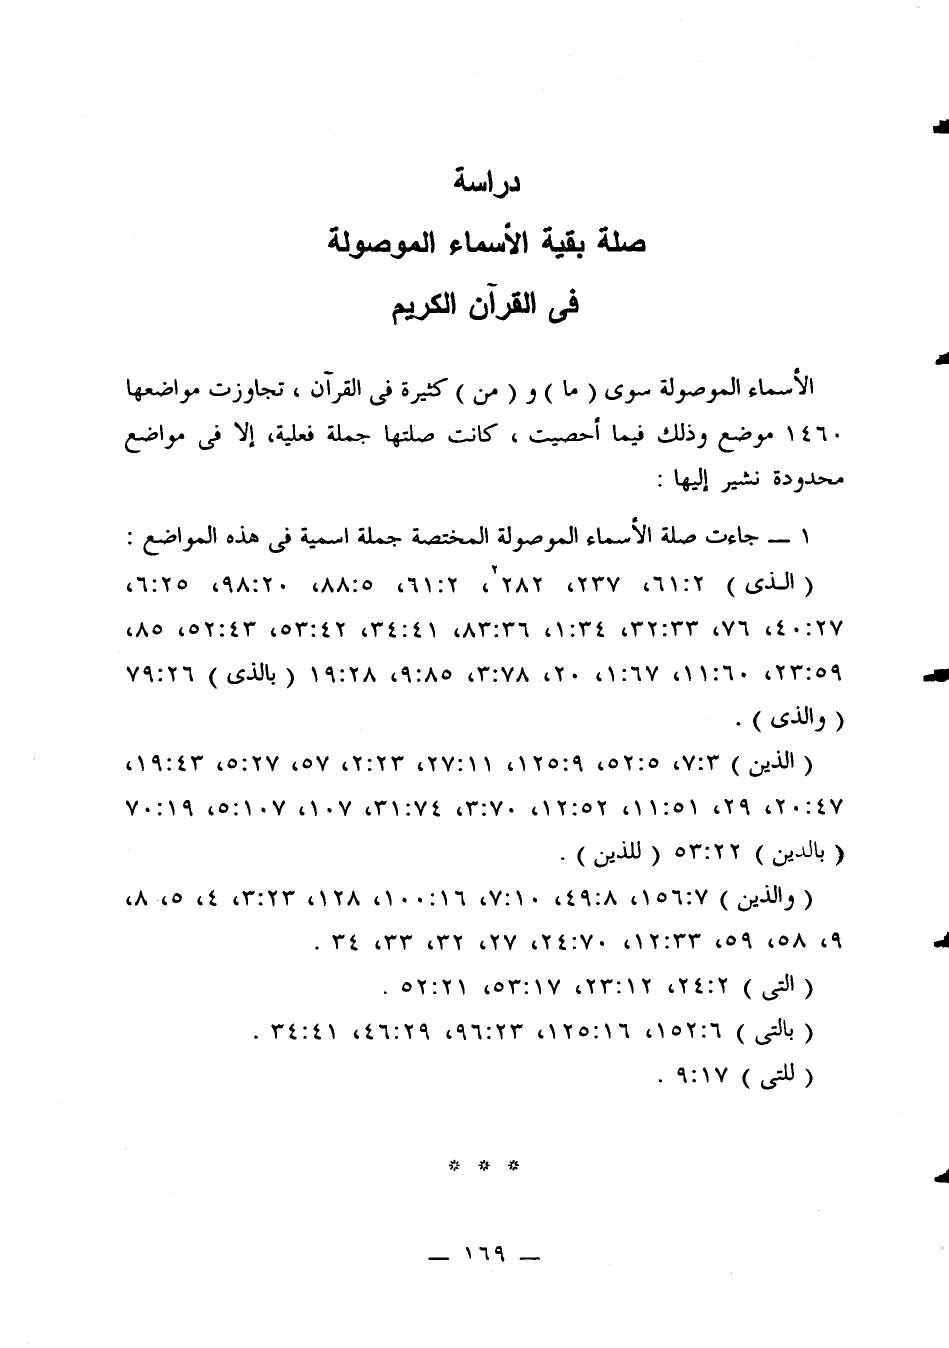 دراسة
صلة بقية الأسماء الموصولة
فى القرآن الكريم
الأسماء الموصولة سوى ( ما ) و ( من ) كثيرة فى القرآن ، تجاوزت مواضعها
١٤٦٠ موضع وذلك فيما أحصيت ، كانت صلتها جملة فعلية، إلا فى مواضع
محدودة نشير إليها :
١ — جاءت صلة الأسماء الموصولة المختصة جملة اسمية فى هذه المواضع :
( الـذى ) ٦١:٢، ٢٣٧، ٢٨٢٢، ٦١:٢، ٨٨:٥، ٩٨:٢٠، ٦:٢٥،
٤٠:٢٧، ٧٦، ٣٢:٣٣، ١:٣٤، ٨٣:٣٦، ٣٤:٤١، ٥٣:٤٢، ٥٢:٤٣، ٨٥،
٢٣:٥٩، ١١:٦٠، ١:٦٧، ٢٠، ٣:٧٨، ٩:٨٥، ١٩:٢٨ ( بالذى ) ٧٩:٢٦
( والذى ) .
( الذين ) ٧:٣، ٥٢:٥، ١٢٥:٩، ٢٧:١١، ٢:٢٣، ٥٧، ٥:٢٧، ١٩:٤٣،
٢٠:٤٧، ٢٩، ١١:٥١، ١٢:٥٢، ٣:٧٠، ٣١:٧٤، ١٠٧، ٥:١٠٧، ٧٠:١٩
( بالدين ) ٥٣:٢٢ ( للذين ) .
( والذين ) ١٥٦:٧، ٤٩:٨، ٧:١٠، ١٠٠:١٦، ١٢٨، ٣:٢٣، ٤، ٥، ٨،
٩، ٥٨، ٥٩، ١٢:٣٣، ٢٤:٧٠، ٢٧، ٣٢، ٣٣، ٣٤ .
( التى ) ٢٤:٢، ٢٣:١٢، ٥٣:١٧، ٥٢:٢١ .
( بالتى ) ١٥٢:٦، ١٢٥:١٦، ٩٦:٢٣، ٤٦:٢٩، ٣٤:٤١ .
( للتى ) ٩:١٧ .
* * *
— ١٦٩ —